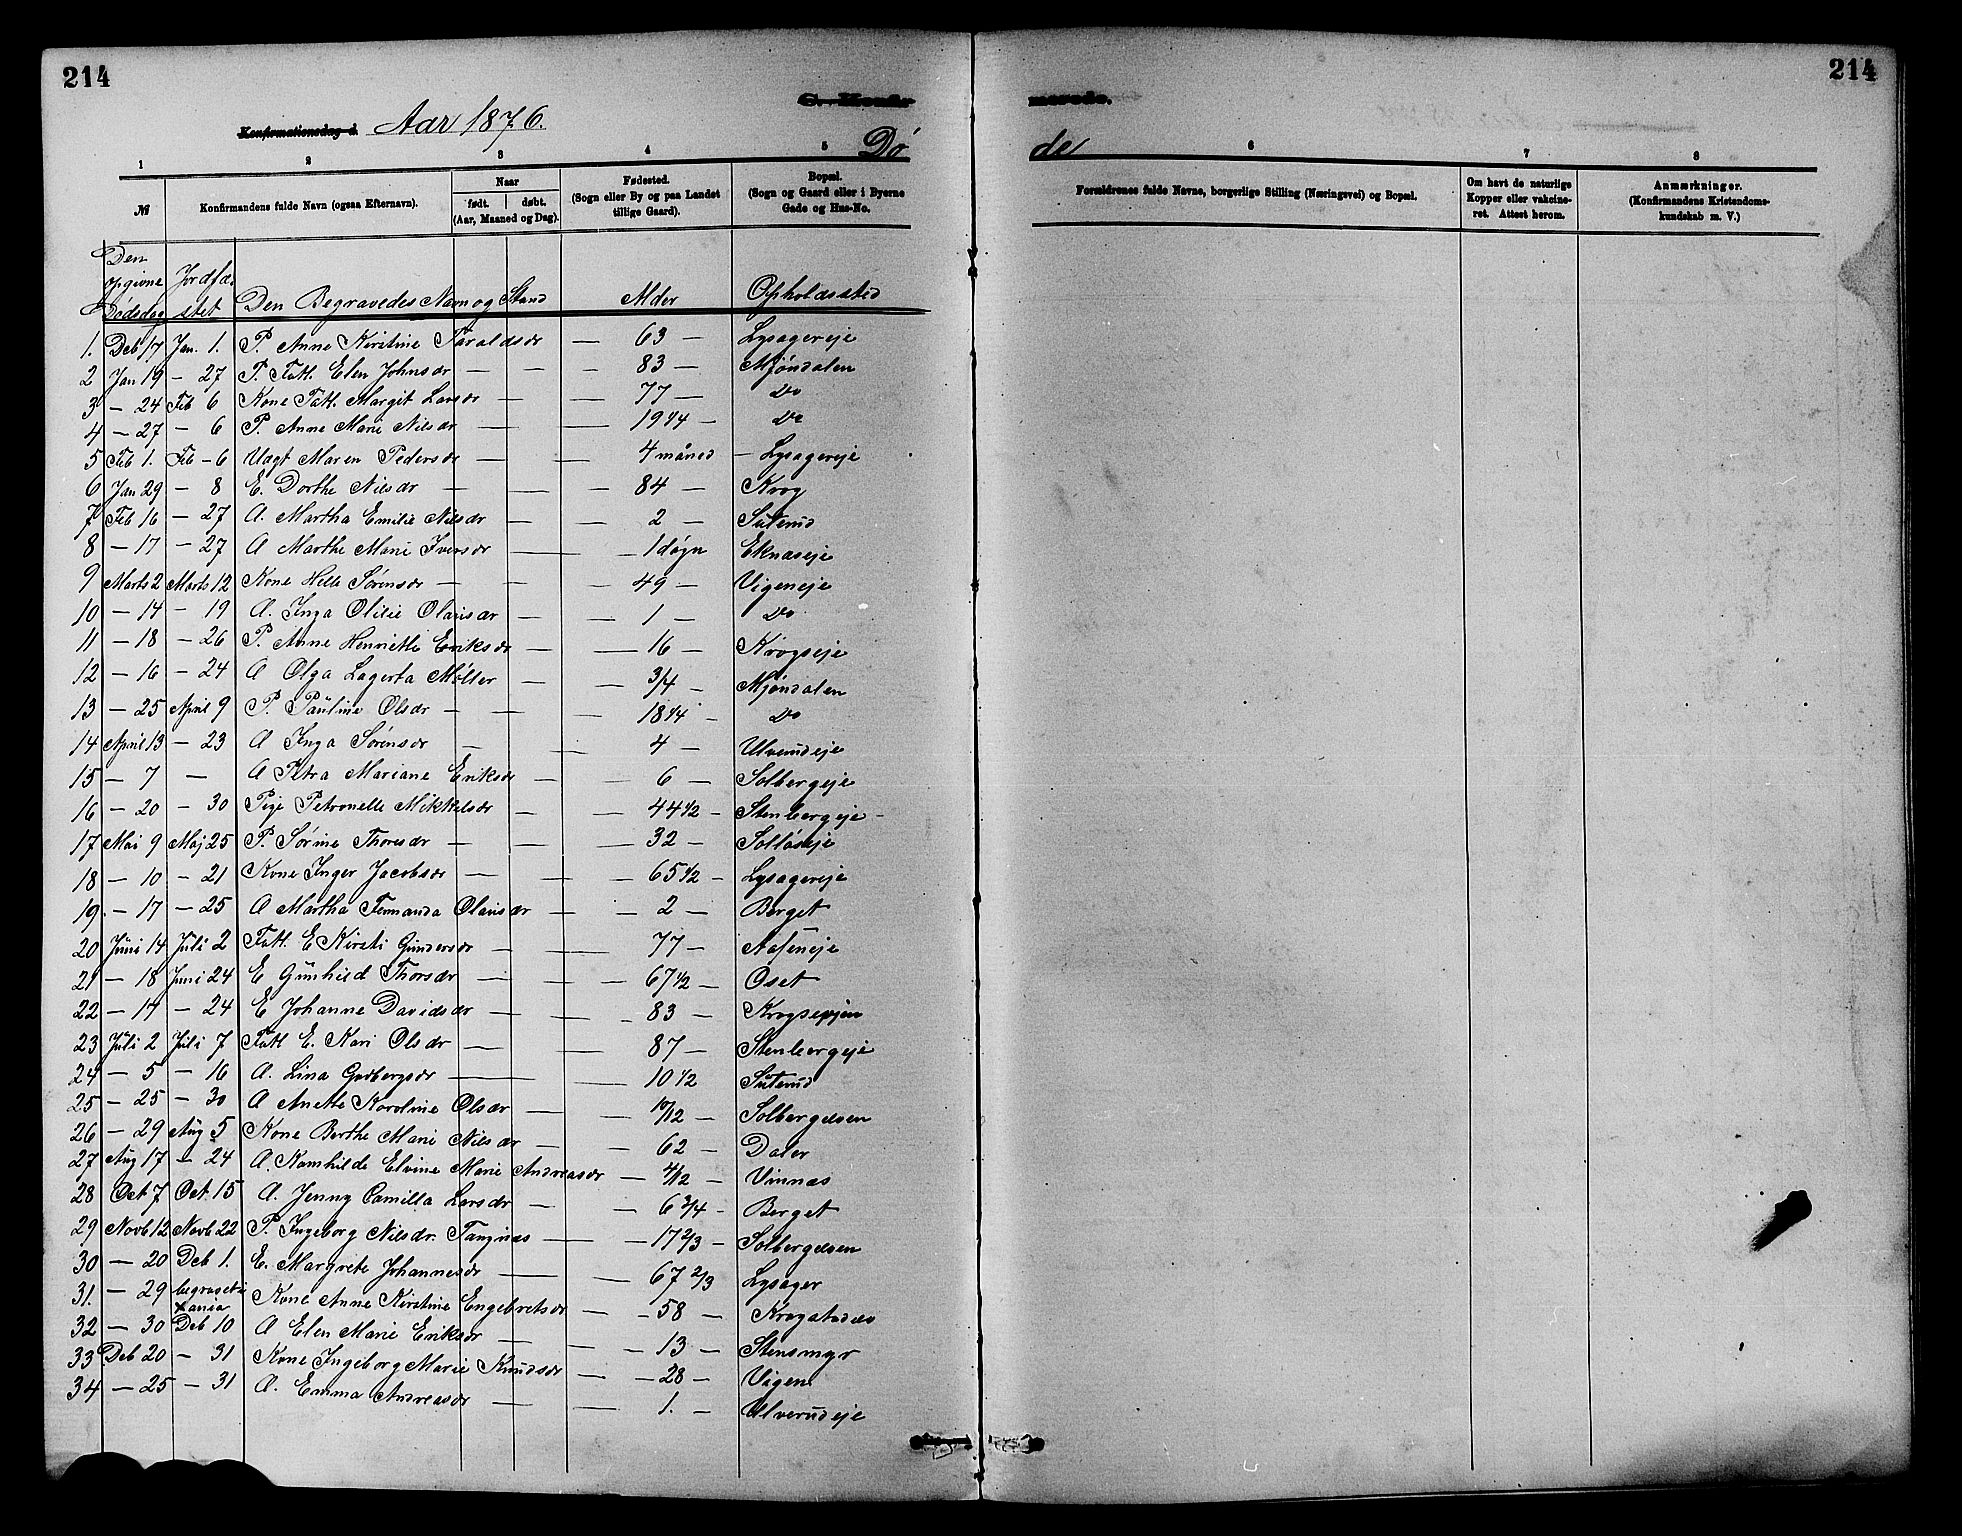 214
214
C. Konfir merede.
Konfirmationsdag d. Aar 1876.
Dø de
1 2 3 4 5 6 7 8
№ Konfirmandens fulde Navn (ogsaa Efternavn). Naar født. døbt. (Aar, Maaned og Dag). Fødested. (Sogn eller By og paa Landet tillige Gaard). Bopæl. (Sogn og Gaard eller i Byerne Gade og Hus-No. Forældrenes fulde Navne, borgerlige Stilling (Næringsvei) og Bopæl. Om havt de naturlige Kopper eller vakcineret. Attest herom. Anmærkninger. (Konfirmandens Kristendomskundskab m. V.)
Den opgivne Dødsdag Jordfæstet Den Begravedes Navn og Stand Alder Opholdssted
1. Deb 17 Jan. 1. P. Anne Kirstine Taraldsdr — 63 — Lysagereje
2 Jan 19 — 27 P. Fatt. Elen Johnsdr — — — 83 — Mjøndalen
3 — 24 Feb 6 Kone Fatt. Margit Larsdr — — 77 — Do
4 — 27 — 6 P. Anne Marie Nilsdr — — 19 1/4 — Do
5 Feb 1. Feb — 6 Uægt Maren Pedersdr — — 4 måned — Lysagereje
6 Jan 29 — 8 E. Dorthe Nilsdr — — — 84 — Krog
7 Feb 16 — 27 A. Martha Emilie Nilsdr — — 2 — Suterud
8 — 17 — 27 A Marthe Marie Iversdr — — 1 døgn Eknaseje
9 Marts 2 Marts 12 Kone Helle Sørensdr — — — 49 — Vigeneje
10 — 14 — 19 A. Inga Olilie Olausdr — — 1 — Do
11 — 18 — 26 P. Anne Henriette Eriksdr — — 16 — Krogseje
12 — 16 — 24 A Olga Lagerta Møller — — 3/4 — Mjøndalen
13 — 25 April 9 P. Pauline Olsdr — — — 18 1/4 — Do
14 April 13 — 23 A Inga Sørensdr — — 4 — Ulverudeje
15 — 7 — A Petra Mariane Eriksdr — — 6 — Solbergeje
16 — 20 — 30 Pige Petronelle Mikkelsdr — — 44 1/2 — Stenbergeje —
17 Mai 9 Maj 25 P. Sørine Thoresdr — — — 32 — Solløseje
18 — 10 — 21 Kone Inger Jacobsdr — — 65 1/2 — Lysagereje
19. — 17 — 25 A Martha Fernanda Olausdr — — 2 — Berget
20 Juni 14 Juli 2 Fatt. E Kirsti Gundersdr — — 77 — Aaseneje
21 — 18 Juni 24 E Gunhild Thorsdr — — 67 1/2 — Oset
22 — 17 — 24 E Johanne Davidsdr — — 83 —
23 Juli 2 Juli 7 Fatt E. Kari Olsdr — — 87 — Stenbergeje
24 — 5 — 16 A. Lina Gudbergsdr — — 10 1/2 Suterud
25 — 25 — 30 A Anette Karoline Olsdr — — 10/12 — Solbergelven
26 — 29 Aug 5 Kone Berthe Marie Nilsdr — — 62 — Daler
27 Aug 17 — 24 A. Ramhilde Elvine Marie Andreasdr — 4/12 — Vinnæs
28 Oct 7 Oct. 15 A. Jenny Camilla Larsdr — — 6 3/4 — Berget
29 Novb 12 Novb 22 P. Ingeborg Nilsdr. Tangnæs — — 17 2/3 — Solbergelven
30 — 20 Deb 1. E. Margrete Johannesdr — — 67 2/3 Lysager
31. — 29 begravet i Xania Kone Anne Kirstine Engebretsdr — — 58 — Krogstadelv
32 — 30 Deb 10 A Elen Marie Eriksdr — — — 13 — Stensmyr
33 Deb 20 — 31 Kone Ingeborg Marie Knudsdr — — 28 — Vigen
34 — 25 — 31 A. Emma Andreasdr — — 1. — Ulverudeje